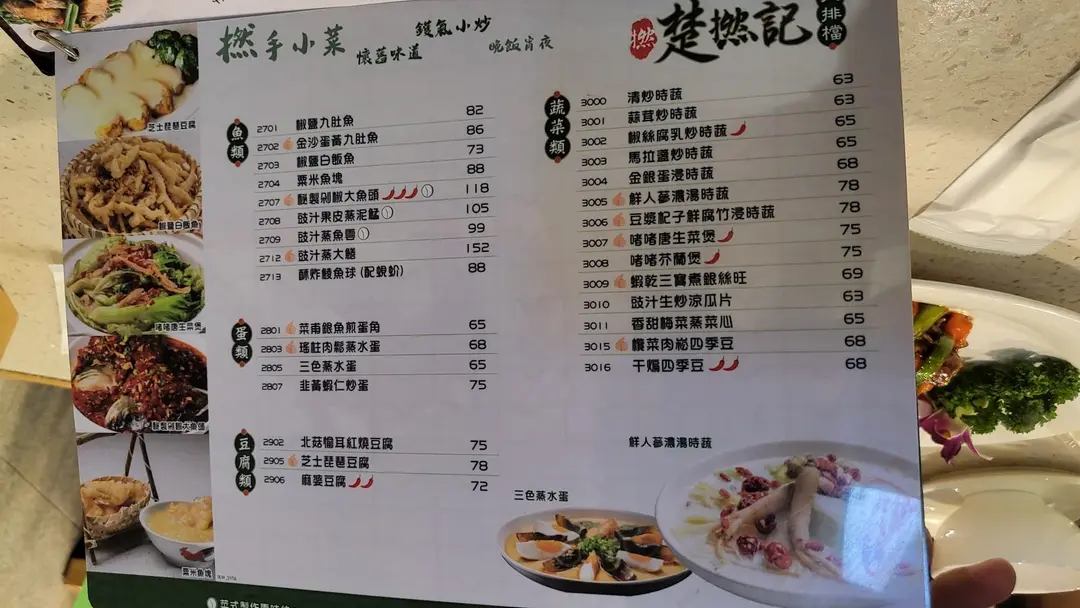 撚手小菜
懷舊味道
鑊氣小炒
晚飯宵夜
撚
楚撚記
排檔
芝士琵琶豆腐
椒鹽白飯魚
啫啫唐生菜煲
秘製剁椒大魚頭
粟米魚塊
魚類
2701 椒鹽九肚魚 82
2702 金沙蛋黃九肚魚 86
2703 椒鹽白飯魚 73
2704 粟米魚塊 88
2707 秘製剁椒大魚頭 118
2708 豉汁果皮蒸泥鯭 105
2709 豉汁蒸魚雲 99
2712 豉汁蒸大鱔 152
2713 酥炸鯪魚球 (配蜆蚧) 88
蛋類
2801 菜甫銀魚煎蛋角 65
2803 瑤柱肉鬆蒸水蛋 68
2805 三色蒸水蛋 65
2807 韭黃蝦仁炒蛋 75
豆腐類
2902 北菇榆耳紅燒豆腐 75
2905 芝士琵琶豆腐 78
2906 麻婆豆腐 72
蔬菜類
3000 清炒時蔬 63
3001 蒜茸炒時蔬 63
3002 椒絲腐乳炒時蔬 65
3003 馬拉盞炒時蔬 65
3004 金銀蛋浸時蔬 68
3005 鮮人蔘濃湯時蔬 78
3006 豆漿杞子鮮腐竹浸時蔬 78
3007 啫啫唐生菜煲 75
3008 啫啫芥蘭煲 75
3009 蝦乾三寶煮銀絲旺 69
3010 豉汁生炒涼瓜片 63
3011 香甜梅菜蒸菜心 65
3015 欖菜肉崧四季豆 68
3016 干煸四季豆 68
鮮人蔘濃湯時蔬
三色蒸水蛋